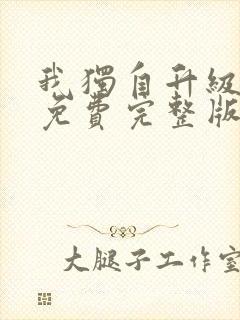 我獨自升級
免費完整版
大腿子工作室